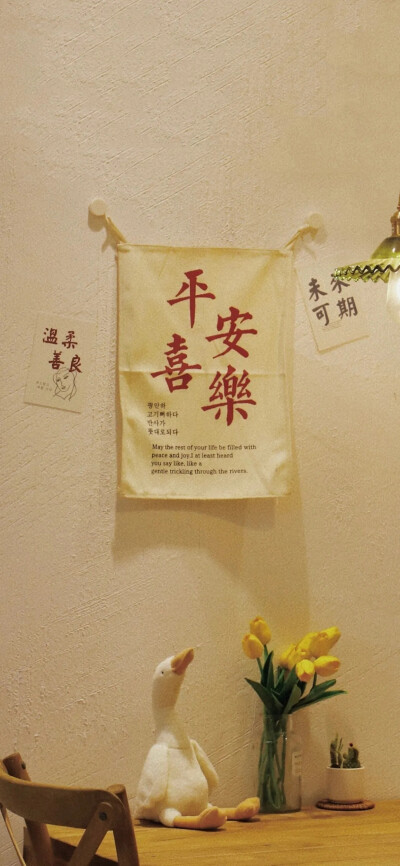 平安
喜樂
평안히
고기뻐하다
만사가
뜻대로되다
May the rest of your life be filled with
peace and joy.I at least heard
you say like, like a
gentle trickling through the rivers.
溫柔
善良
未来
可期